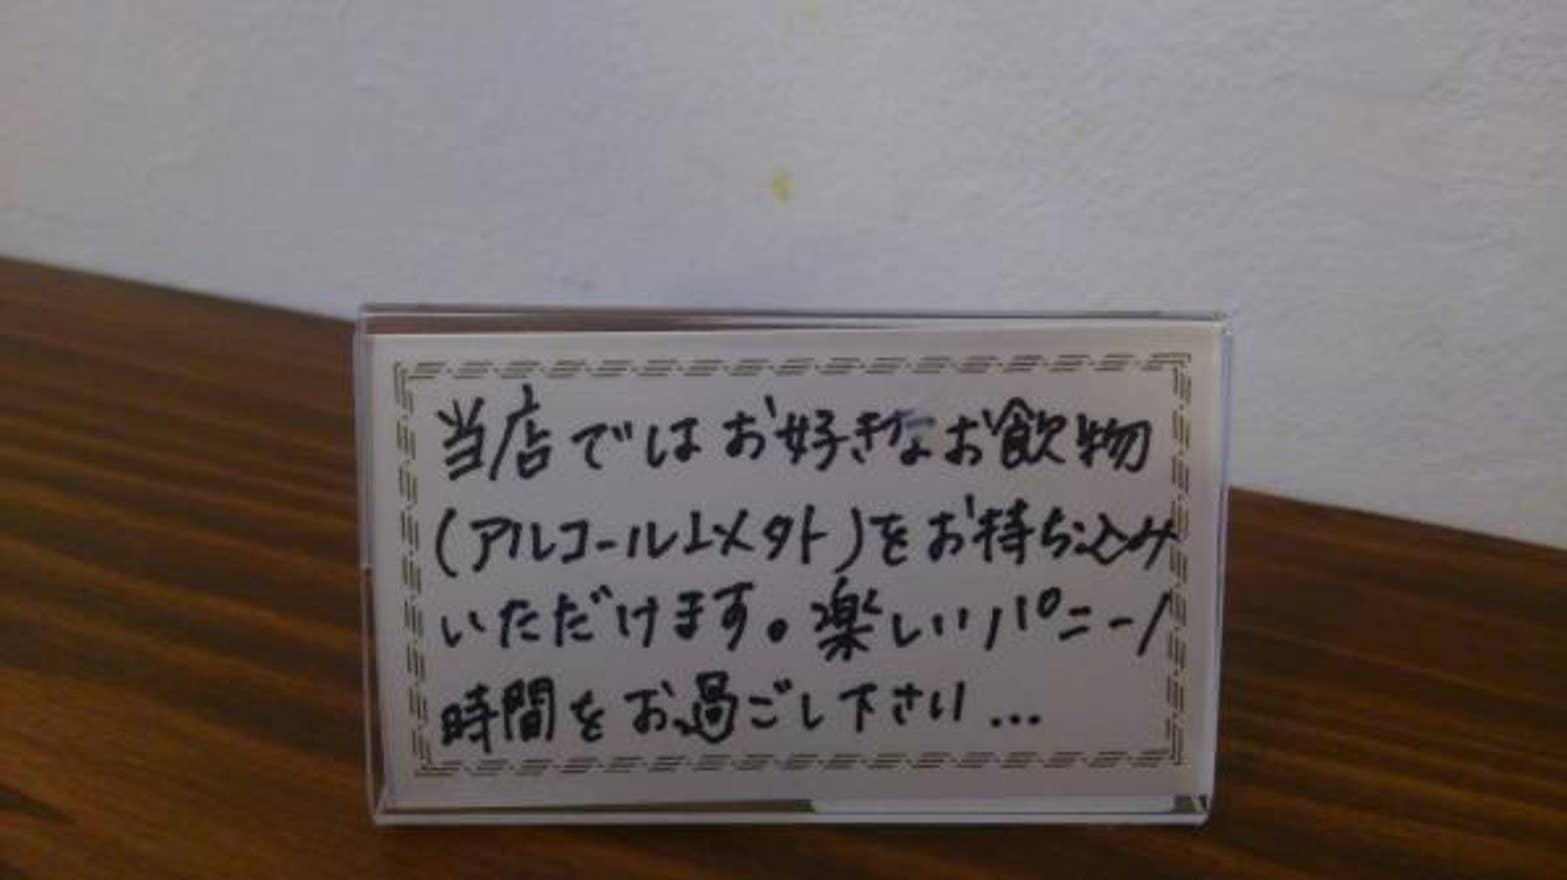 当店ではお好きなお飲物
(アルコール以外)をお持ち込み
いただけます。楽しいパニーノ
時間をお過ごし下さい...